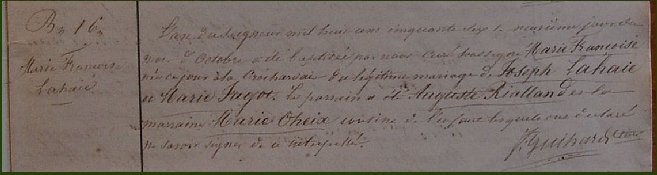 Bn 16
Marie Françoise
Lahaie
L'an du Seigneur mil huit cent cinquante six le neuvième jour du
mois d'Octobre a été baptisée par nous Curé soussigné Marie Françoise
née ce jour à la du légitime mariage de Joseph Lahaie
et Marie Jagot. Le parrain a été Auguste Rialland et la
marraine Marie Oheix cousine de l'enfant lesquels ont déclaré
ne savoir signer de ce interpellé.
J. Guihard